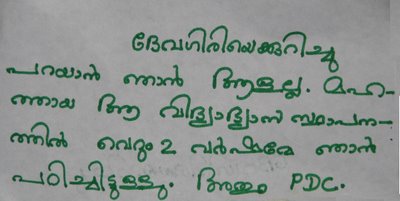 ദേവഗിരിയെക്കുറിച്ചു
പറയാൻ ഞാൻ ആളല്ല. മഹ-
ത്തായ ആ വിദ്ധ്യാഭ്യാസ സ്ഥാപന-
ത്തിൽ വെറും 2 വർഷമേ ഞാൻ
പഠിച്ചിട്ടുള്ളു. അതും PDC.